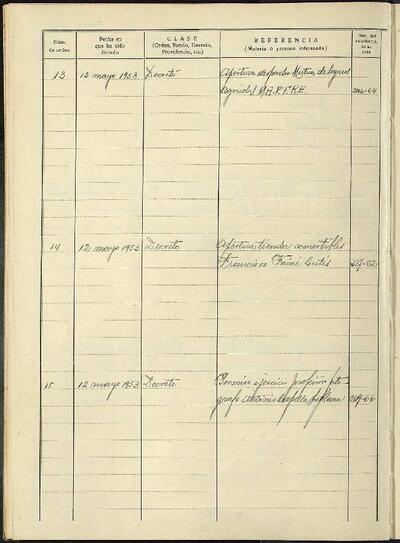 Núm. de orden
Fecha en que ha sido dictado
CLASE
(Orden, Bando, Decreto, Providencia, etc.)
REFERENCIA
(Materia o persona interesada)
13 12 mayo 1953 Decreto Apertura despacho Mutua de Seguros
Agrícola M.A.P.F.R.E. 246-64
14 12 mayo 1953 Decreto Apertura tienda comestibles
Francisco
15 12 mayo 1953 Decreto Permiso ejercicio profesión fotó-
grafo Antonio